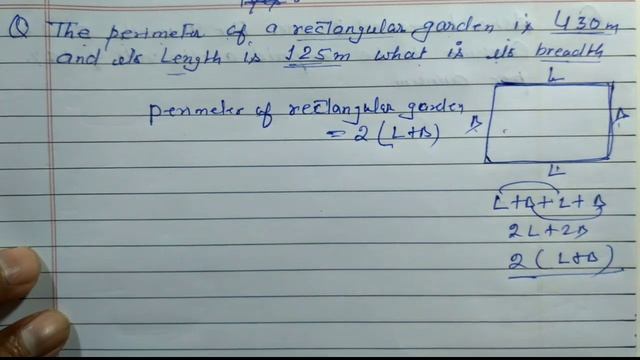 Q The perimeter of a rectangular garden is 430m
and its Length is 125m what is its breadth
perimeter of rectangular garden
= 2 (L+B)
L
B
B
L
L+B+L+B
2L+2B
2 (L+B)